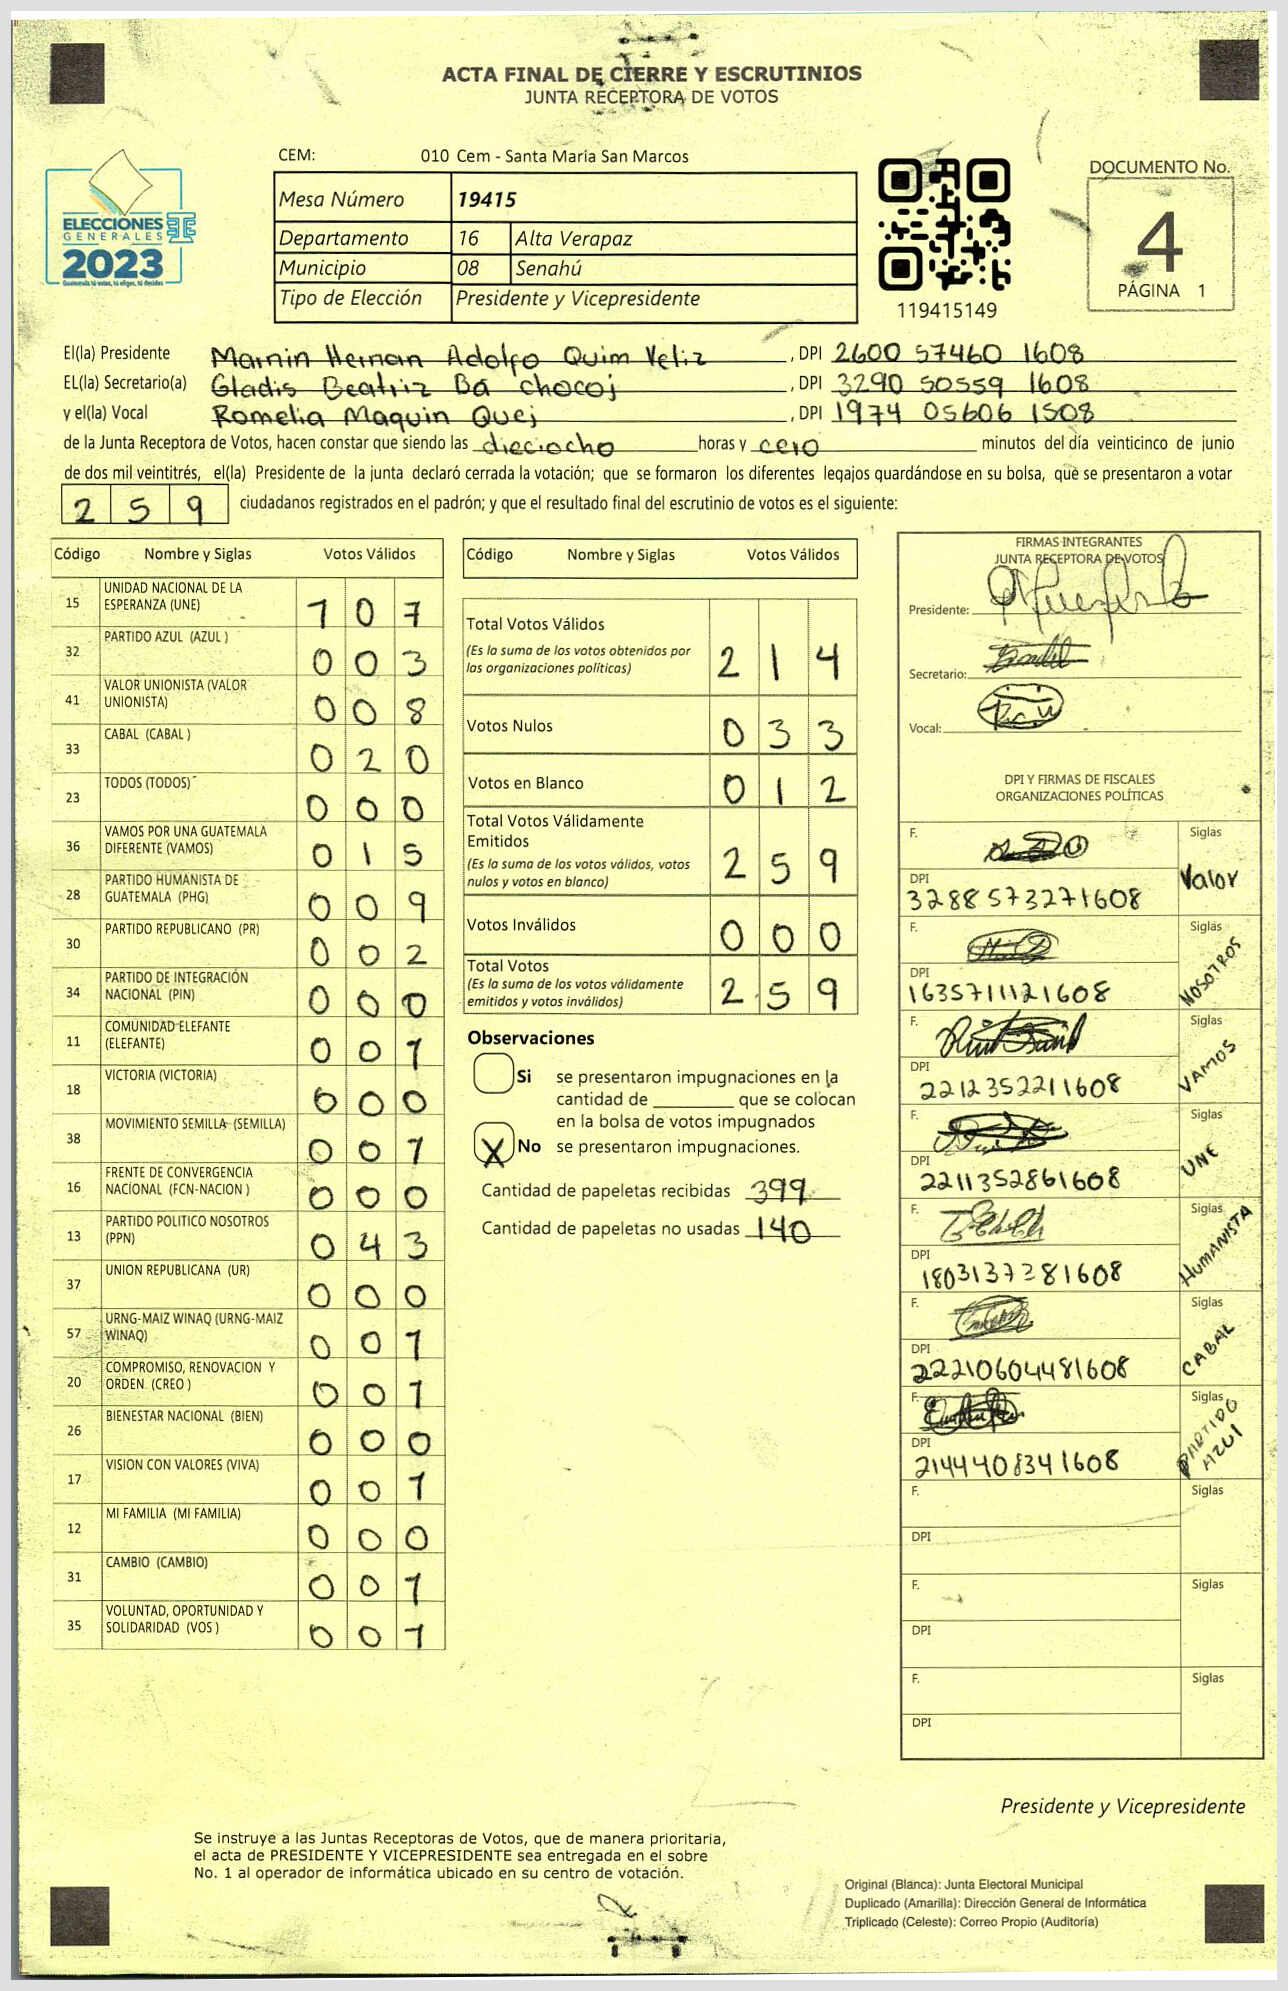 ACTA FINAL DE CIERRE Y ESCRUTINIOS
JUNTA RECEPTORA DE VOTOS
ELECCIONES
GENERALES
2023
Guatemala tú votas, tú eliges, tú decides
CEM: 010 Cem - Santa María San Marcos
Mesa Número 19415
Departamento 16 Alta Verapaz
Municipio 08 Senahú
Tipo de Elección Presidente y Vicepresidente
119415149
DOCUMENTO No.
4
PÁGINA 1
El(la) Presidente Marnin Hernan Adolfo Quim Veliz, DPI 2600 57460 1608
EL(la) Secretario(a) Gladis Beatriz Ba chocoj, DPI 3290 50559 1608
y el(la) Vocal Romelia Maquin Quej, DPI 1974 05606 1508
de la Junta Receptora de Votos, hacen constar que siendo las dieciocho horas y cero minutos del día veinticinco de junio
de dos mil veintitrés, el(la) Presidente de la junta declaró cerrada la votación; que se formaron los diferentes legajos guardándose en su bolsa, que se presentaron a votar
259 ciudadanos registrados en el padrón; y que el resultado final del escrutinio de votos es el siguiente:
Código Nombre y Siglas Votos Válidos
15 UNIDAD NACIONAL DE LA ESPERANZA (UNE) 107
32 PARTIDO AZUL (AZUL ) 003
41 VALOR UNIONISTA (VALOR UNIONISTA) 008
33 CABAL (CABAL ) 020
23 TODOS (TODOS) 000
36 VAMOS POR UNA GUATEMALA DIFERENTE (VAMOS) 015
28 PARTIDO HUMANISTA DE GUATEMALA (PHG) 009
30 PARTIDO REPUBLICANO (PR) 002
34 PARTIDO DE INTEGRACIÓN NACIONAL (PIN) 000
11 COMUNIDAD ELEFANTE (ELEFANTE) 001
18 VICTORIA (VICTORIA) 000
38 MOVIMIENTO SEMILLA (SEMILLA) 001
16 FRENTE DE CONVERGENCIA NACIONAL (FCN-NACION ) 000
13 PARTIDO POLITICO NOSOTROS (PPN) 043
37 UNION REPUBLICANA (UR) 000
57 URNG-MAIZ WINAQ (URNG-MAIZ WINAQ) 001
20 COMPROMISO, RENOVACION Y ORDEN (CREO ) 001
26 BIENESTAR NACIONAL (BIEN) 000
17 VISION CON VALORES (VIVA) 001
12 MI FAMILIA (MI FAMILIA) 000
31 CAMBIO (CAMBIO) 001
35 VOLUNTAD, OPORTUNIDAD Y SOLIDARIDAD (VOS ) 001
Código Nombre y Siglas Votos Válidos
Total Votos Válidos 214
(Es la suma de los votos obtenidos por
las organizaciones políticas)
Votos Nulos 033
Votos en Blanco 012
Total Votos Válidamente
Emitidos 259
(Es la suma de los votos válidos, votos
nulos y votos en blanco)
Votos Inválidos 000
Total Votos 259
(Es la suma de los votos válidamente
emitidos y votos inválidos)
Observaciones
Si se presentaron impugnaciones en la
cantidad de ________ que se colocan
en la bolsa de votos impugnados
X No se presentaron impugnaciones.
Cantidad de papeletas recibidas 399
Cantidad de papeletas no usadas 140
FIRMAS INTEGRANTES
JUNTA RECEPTORA DE VOTOS
Presidente:
Secretario:
Vocal:
DPI Y FIRMAS DE FISCALES
ORGANIZACIONES POLÍTICAS
F. Siglas Valor
DPI 3288573271608
F. Siglas NOSOTROS
DPI 1635711121608
F. Siglas VAMOS
DPI 2212352211608
F. Siglas UNE
DPI 2211352861608
F. Siglas HUMANISTA
DPI 1803137381608
F. Siglas CABAL
DPI 2221060448 1608
F. Siglas PARTIDO AZUL
DPI 2144408341608
F. Siglas
DPI
F. Siglas
DPI
F. Siglas
DPI
Presidente y Vicepresidente
Se instruye a las Juntas Receptoras de Votos, que de manera prioritaria,
el acta de PRESIDENTE Y VICEPRESIDENTE sea entregada en el sobre
No. 1 al operador de informática ubicado en su centro de votación.
Original (Blanca): Junta Electoral Municipal
Duplicado (Amarilla): Dirección General de Informática
Triplicado (Celeste): Correo Propio (Auditoría)